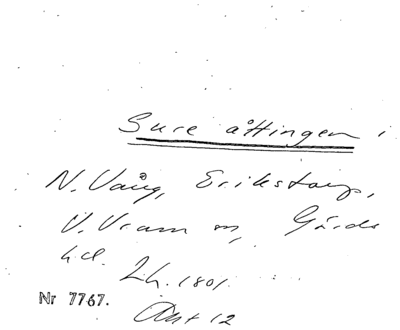 Sure åttingen i
N. Vång, Erikstorp,
V. Vram m, Gärds
hd. Lh. 1801.
Nr 7767.
Akt 12